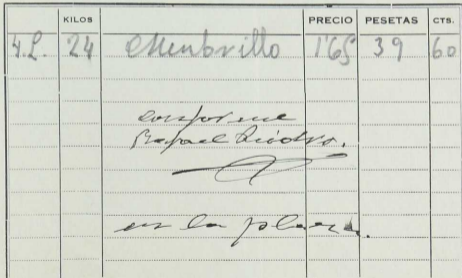 KILOS PRECIO PESETAS CTS.
4.L. 24 Menbrillo 1'65 39 60
conforme
Rafael
en la plaza.